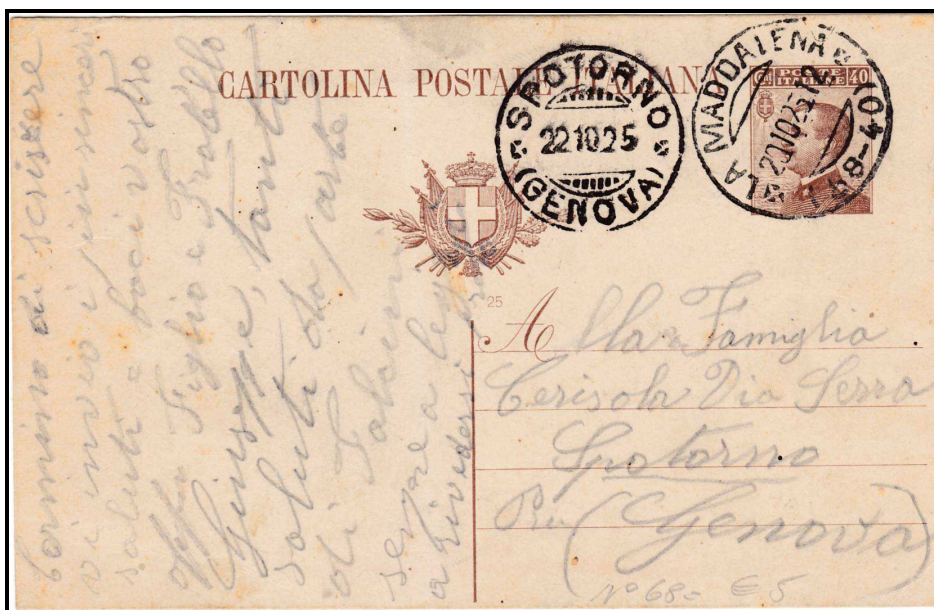 CARTOLINA POSTALE ITALIANA
POSTE
ITALIANE
40
SPOTORNO
22 10 25
(GENOVA)
LA MADDALENA
20 10 25
(10-48.7)
25
A lla Famiglia
Cerisola Via Serra
Spotorno
(Genova)
Nº 68= € 5
termino di scrivere
vi invio i più sinceri
saluti e baci vostro
Figlio e Fratello
Giuseppe, tanti
saluti da parte
di
sempre a
a rivederci